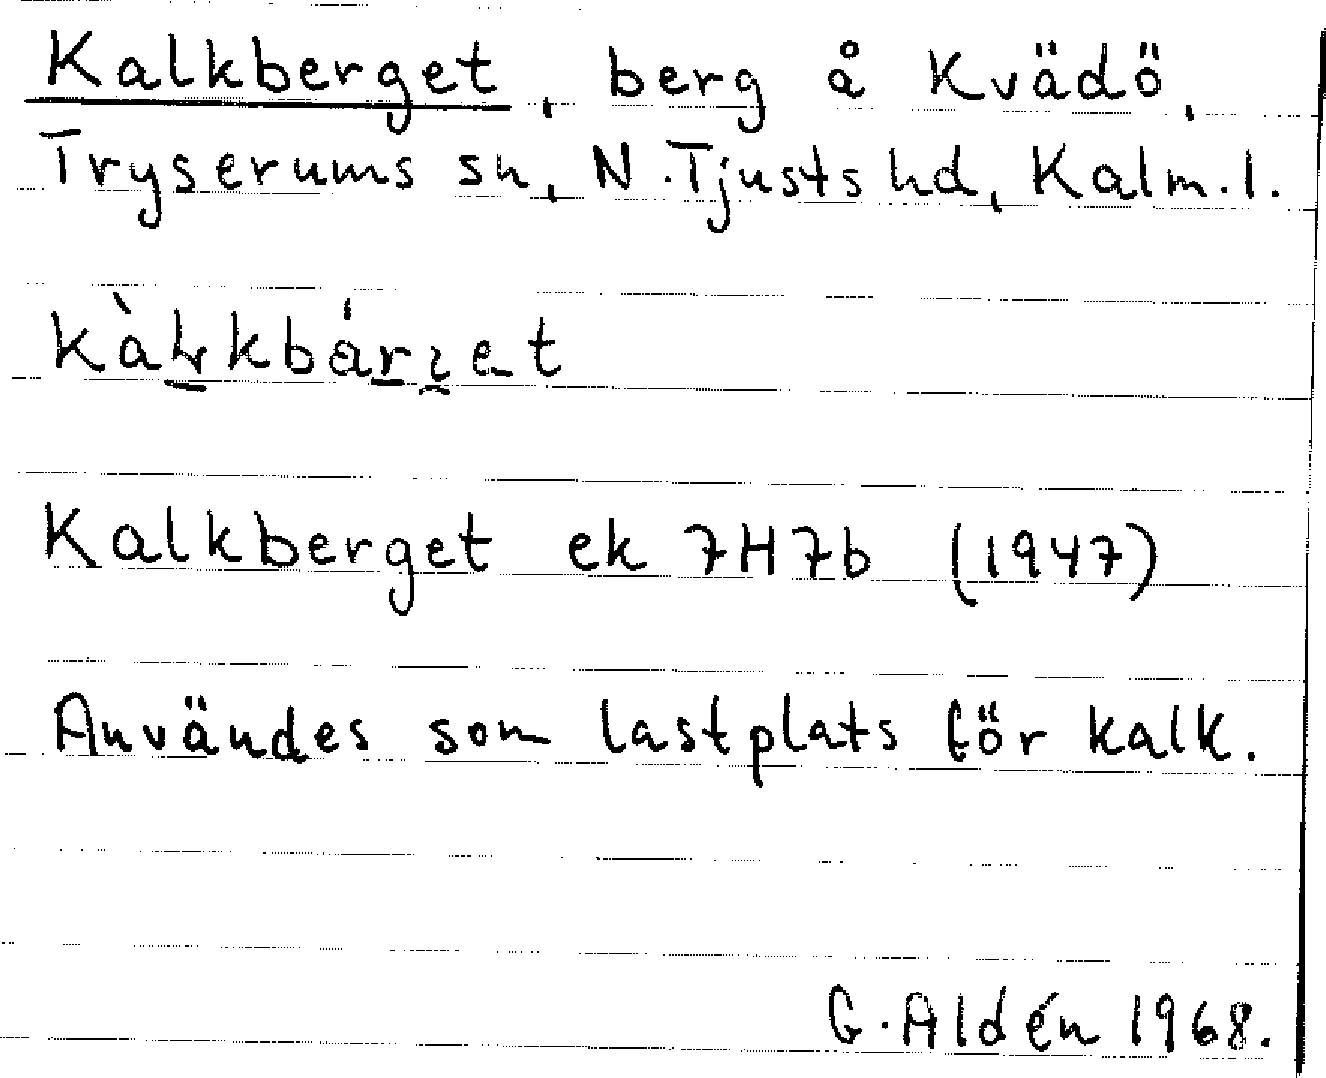 Kalkberget, berg å Kvädö,
Tryserums sn, N. Tjusts hd, Kalm. l.
Kalkberget ek 7H7b (1947)
Användes som lastplats för kalk.
G. Aldén 1968.